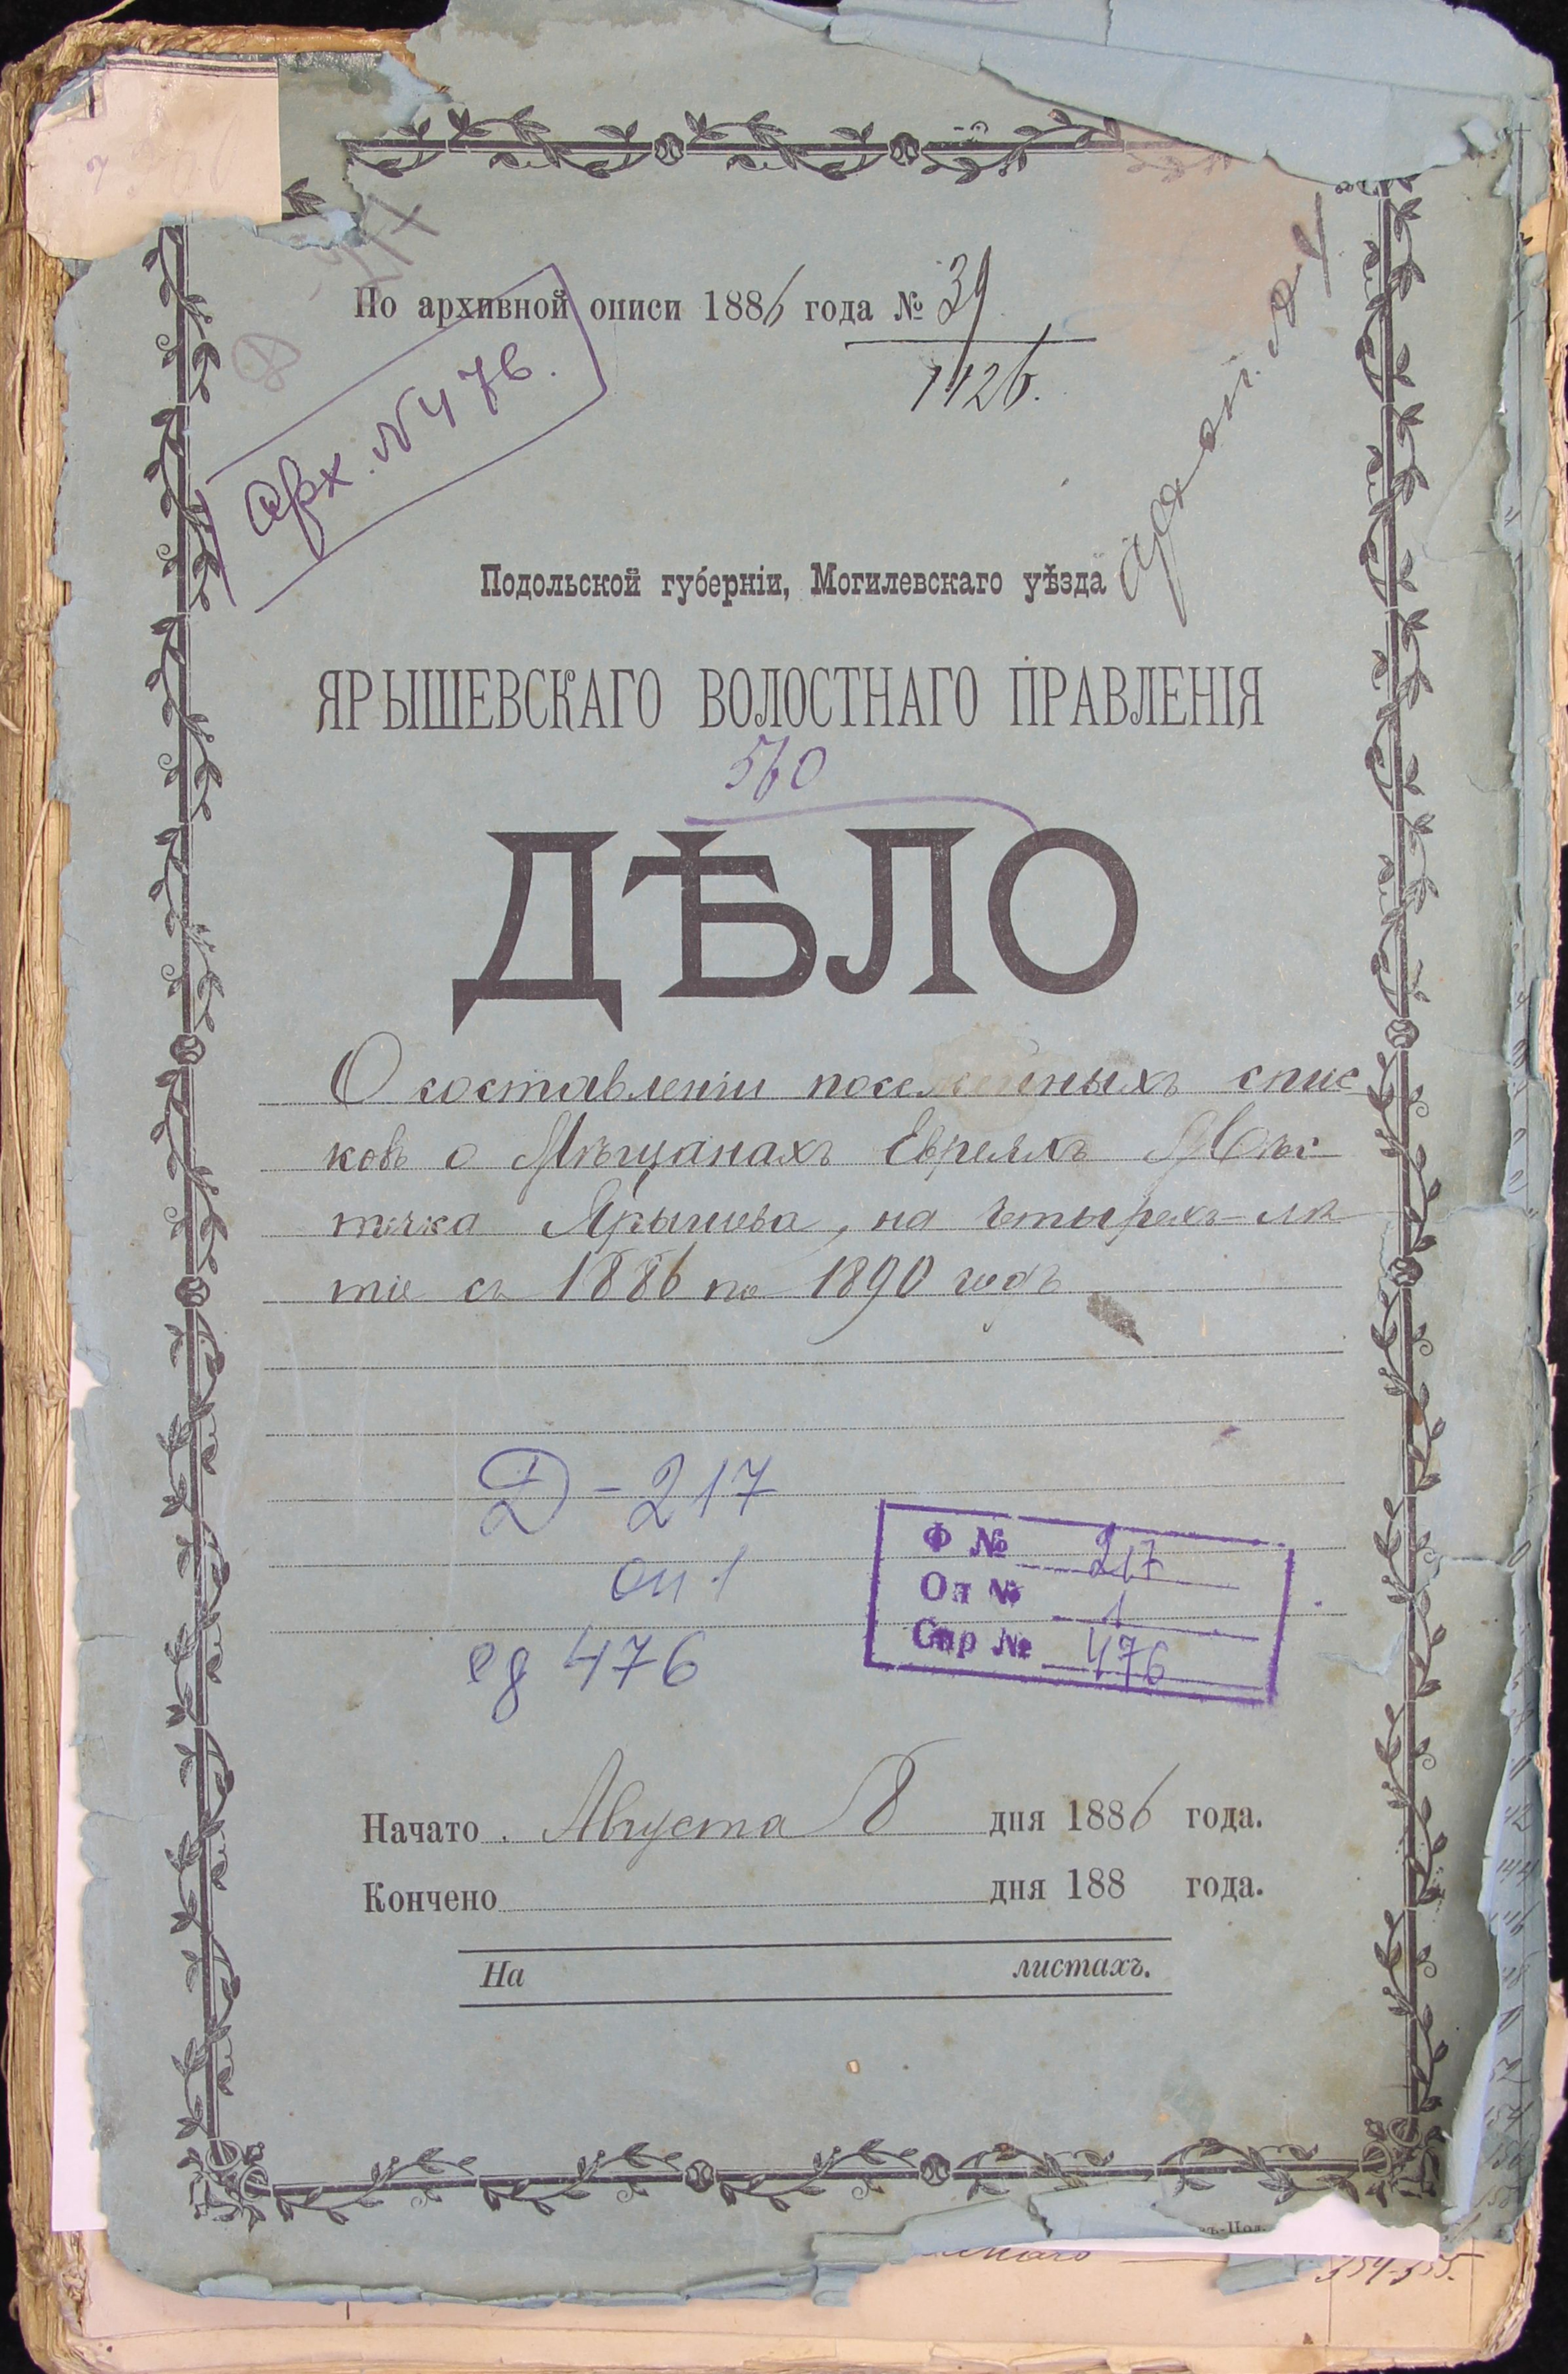 По архивной описи 1886 года № 39
1426.
арх. № 476.
Подольской губерніи, Могилевскаго уѣзда
ЯРЫШЕВСКАГО ВОЛОСТНАГО ПРАВЛЕНІЯ
560
ДѢЛО
О составленіи посемейныхъ спис-
ковъ о Мѣщанахъ Евреяхъ Мѣс-
течка Ярышева, на четырехъ-лѣ
тіе съ 1886 по 1890 годъ
Д-217
оп 1
ед 476
Ф № 217
Оп № 1
Спр № 476
Начато Августа 8 дня 1886 года.
Кончено дня 188 года.
На листахъ.
354-355.